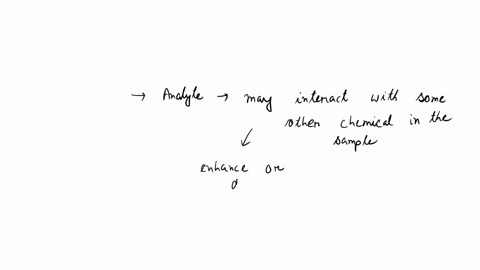 → Analyte → may interact with some
other chemical in the
sample
↙
enhance or
d